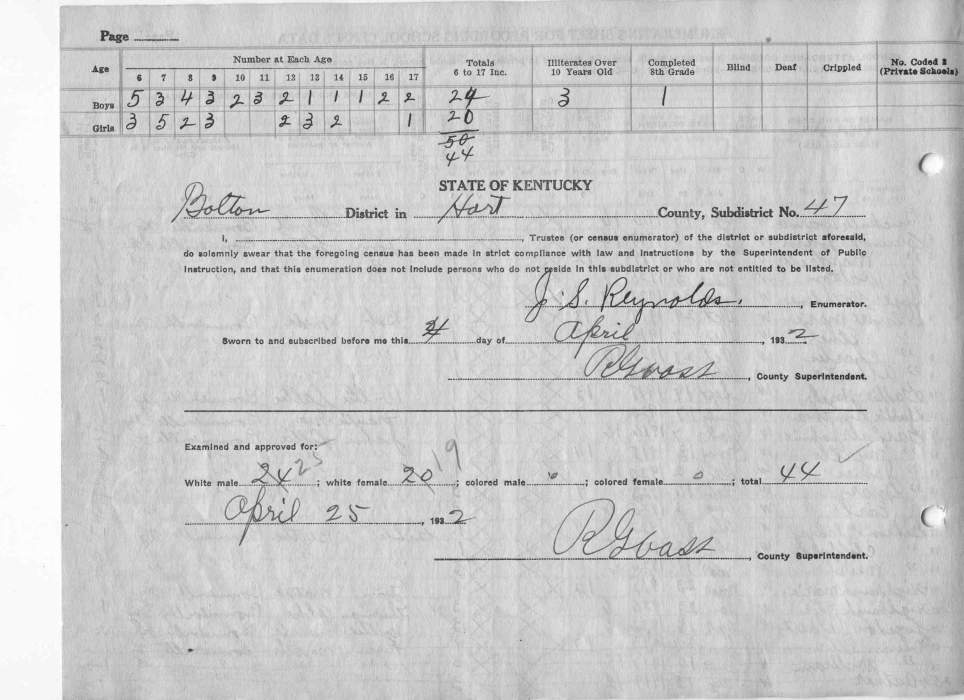 Page
Age Number at Each Age Totals 6 to 17 Inc. Illiterates Over 10 Years Old Completed 8th Grade Blind Deaf Crippled No. Coded 2 (Private Schools)
6 7 8 9 10 11 12 13 14 15 16 17
Boys 5 3 4 3 2 3 2 1 1 1 2 2 24 3 1
Girls 3 5 2 3 2 3 2 1 20
50
44
STATE OF KENTUCKY
Bolton District in Hart County, Subdistrict No. 47
I, , Trustee (or census enumerator) of the district or subdistrict aforesaid,
do solemnly swear that the foregoing census has been made in strict compliance with law and instructions by the Superintendent of Public
Instruction, and that this enumeration does not include persons who do not reside in this subdistrict or who are not entitled to be listed.
J. S. Reynolds. , Enumerator.
Sworn to and subscribed before me this 4 day of April , 1932
, County Superintendent.
Examined and approved for:
White male 24 25 ; white female 20 19 ; colored male 0 ; colored female 0 ; total 44
April 25 , 1932
, County Superintendent.